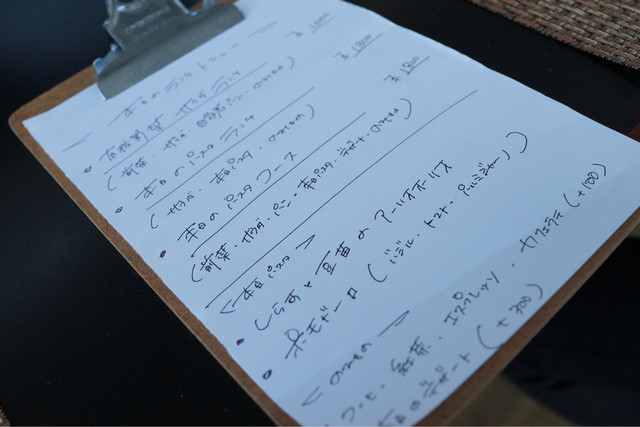 本日のランチメニュー
・有機野菜 サラダランチ ¥1000
(前菜・サラダ・自家製パン・のみもの)
・本日のパスタランチ ¥1300
(サラダ・本日パスタ・のみもの)
・本日のパスタコース ¥1800
(前菜・サラダ・パン・本日パスタ・デザート・のみもの)
<本日パスタ>
・しらすと豆苗のアーリオオーリオ
・ポモドーロ (バジル・トマト・パルミジャーノ)
<のみもの>
コーヒー・紅茶・エスプレッソ・カフェラテ (+100)
本日のデザート (+300)